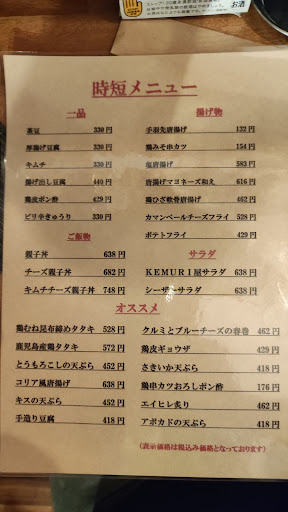 お酒
時短メニュー
一品
茶豆 330円
厚揚げ豆腐 330円
キムチ 330円
揚げ出し豆腐 440円
鶏皮ポン酢 429円
ピリ辛きゅうり 330円
ご飯物
親子丼 638円
チーズ親子丼 682円
キムチチーズ親子丼 748円
揚げ物
手羽先唐揚げ 132円
鶏みそ串カツ 154円
塩唐揚げ 583円
唐揚げマヨネーズ和え 616円
鶏ひざ軟骨唐揚げ 462円
カマンベールチーズフライ 528円
ポテトフライ 429円
サラダ
KEMURI屋サラダ 638円
シーザーサラダ 638円
オススメ
鶏むね昆布締めタタキ 528円
鹿児島産鶏タタキ 572円
とうもろこしの天ぷら 452円
コリア風唐揚げ 638円
キスの天ぷら 452円
手造り豆腐 418円
クルミとブルーチーズの春巻 462円
鶏皮ギョウザ 429円
さきいか天ぷら 418円
鶏串カツおろしポン酢 176円
エイヒレ炙り 462円
アボカドの天ぷら 418円
(表示価格は税込み価格となっております)